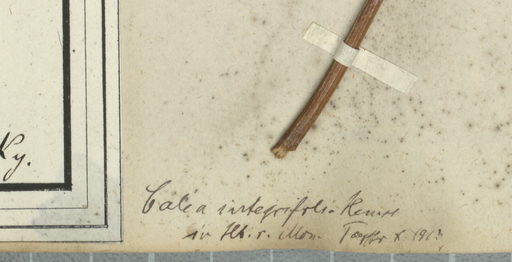 Ky.
Calea integrifolia Hemsl
in Hb. r. Mon. Toepffer X. 1913